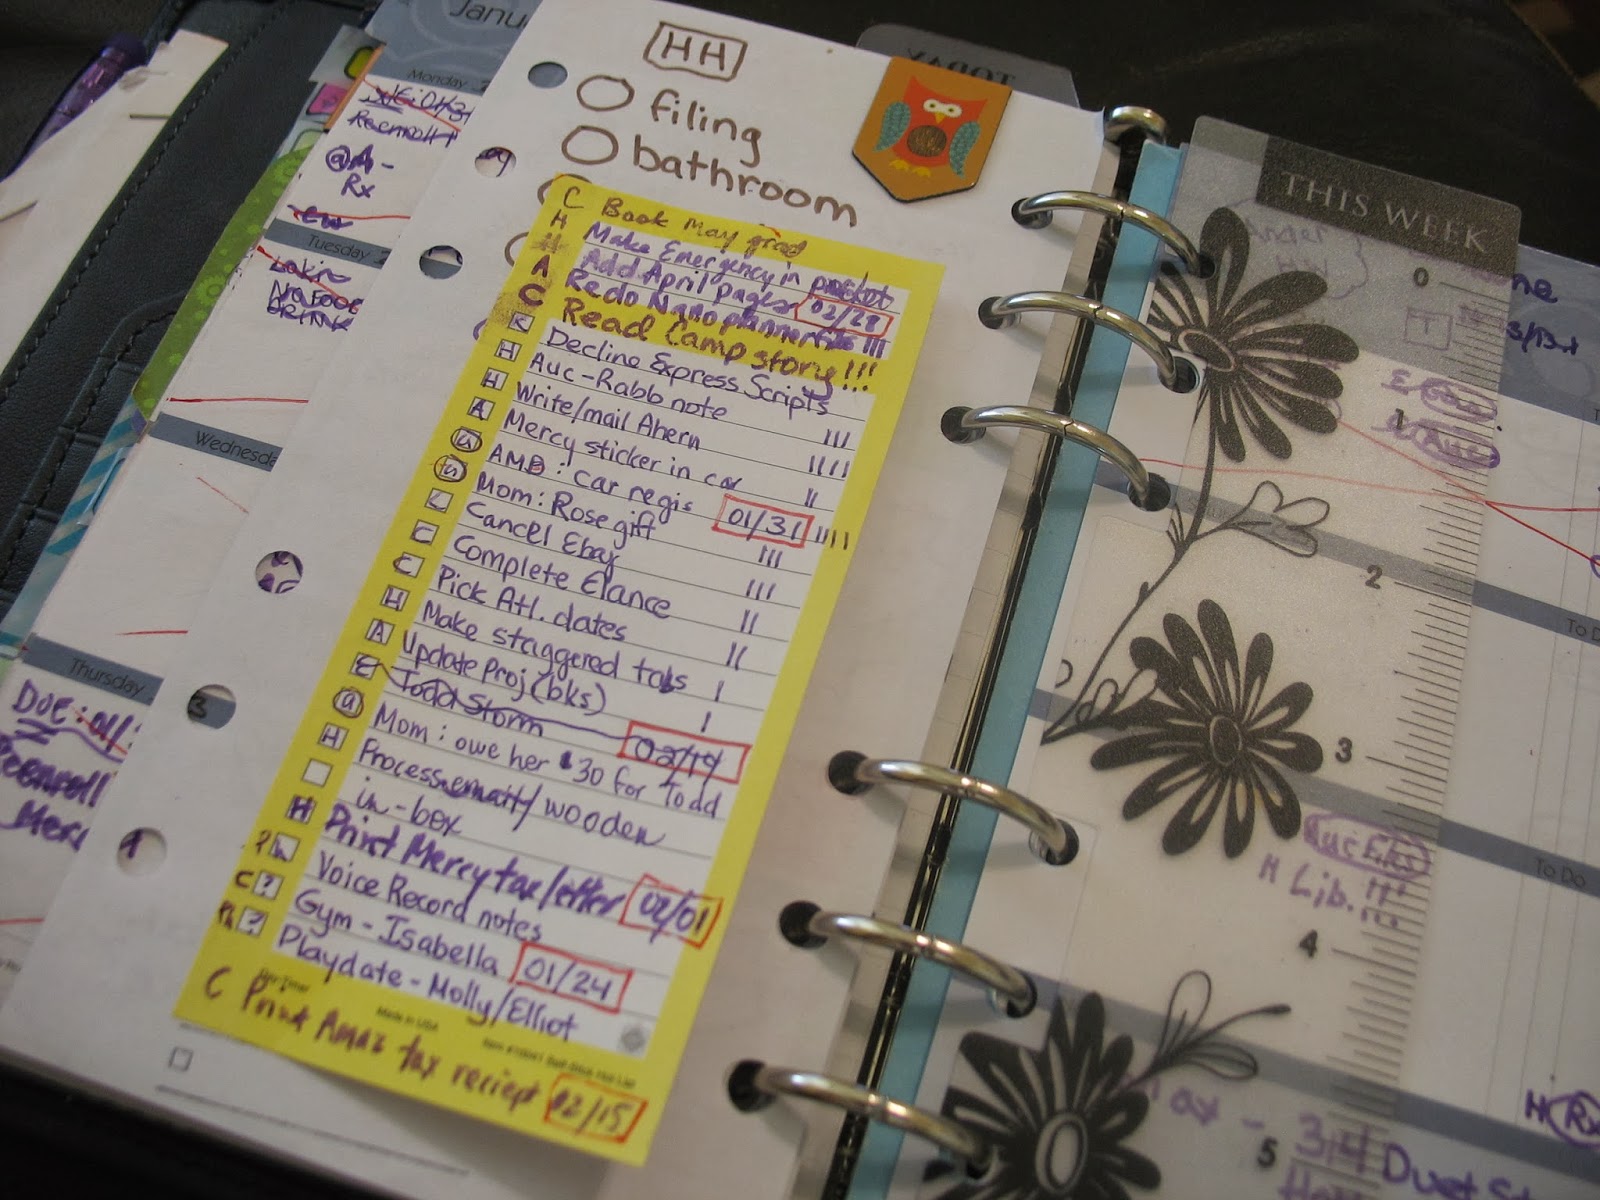 Janu
Monday
DUE: 01/31
@A-
Rx
Tuesday
NO FOOD
DRINK
Wednesda
Thursday
DUE: 01/
reenroll
Merc
HH
filing
bathroom
C Book May grad
H Make Emergency in pocket
Add April Pages 02/28
A Redo Nano planner !!!
C Read Camp story!!!
Decline Express Scripts
H Auc-Rabb note
H Write/mail Ahern
A Mercy sticker in car
AMB: car regis 01/31
Mom: Rose gift
Cancel Ebay
C Complete Elance
C Pick Atl. dates
H Make staggered tabs
A Update Proj (bks)
E Todd Storm 02/14
@ Mom: owe her $30 for Todd
H Process email/wooden
in-box
H Print Mercy tax letter 02/01
Voice Record notes
C ? Gym - Isabella 01/24
? Playdate - Molly/Elliot
Made in USA
C Print Amaz tax reciept 02/15
TODAY
THIS WEEK
0
1
2
3
4
5
To D
To Do
H Lib. !!!
H Rx
3/4 Duet